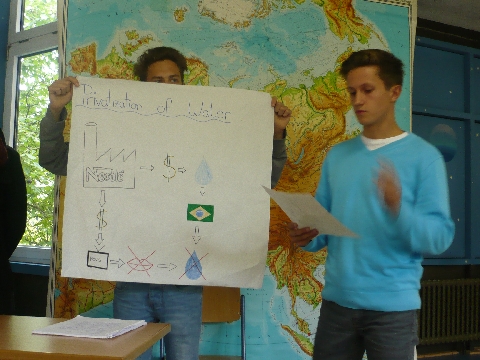 Privatisation of Water
Nestlé
$
$